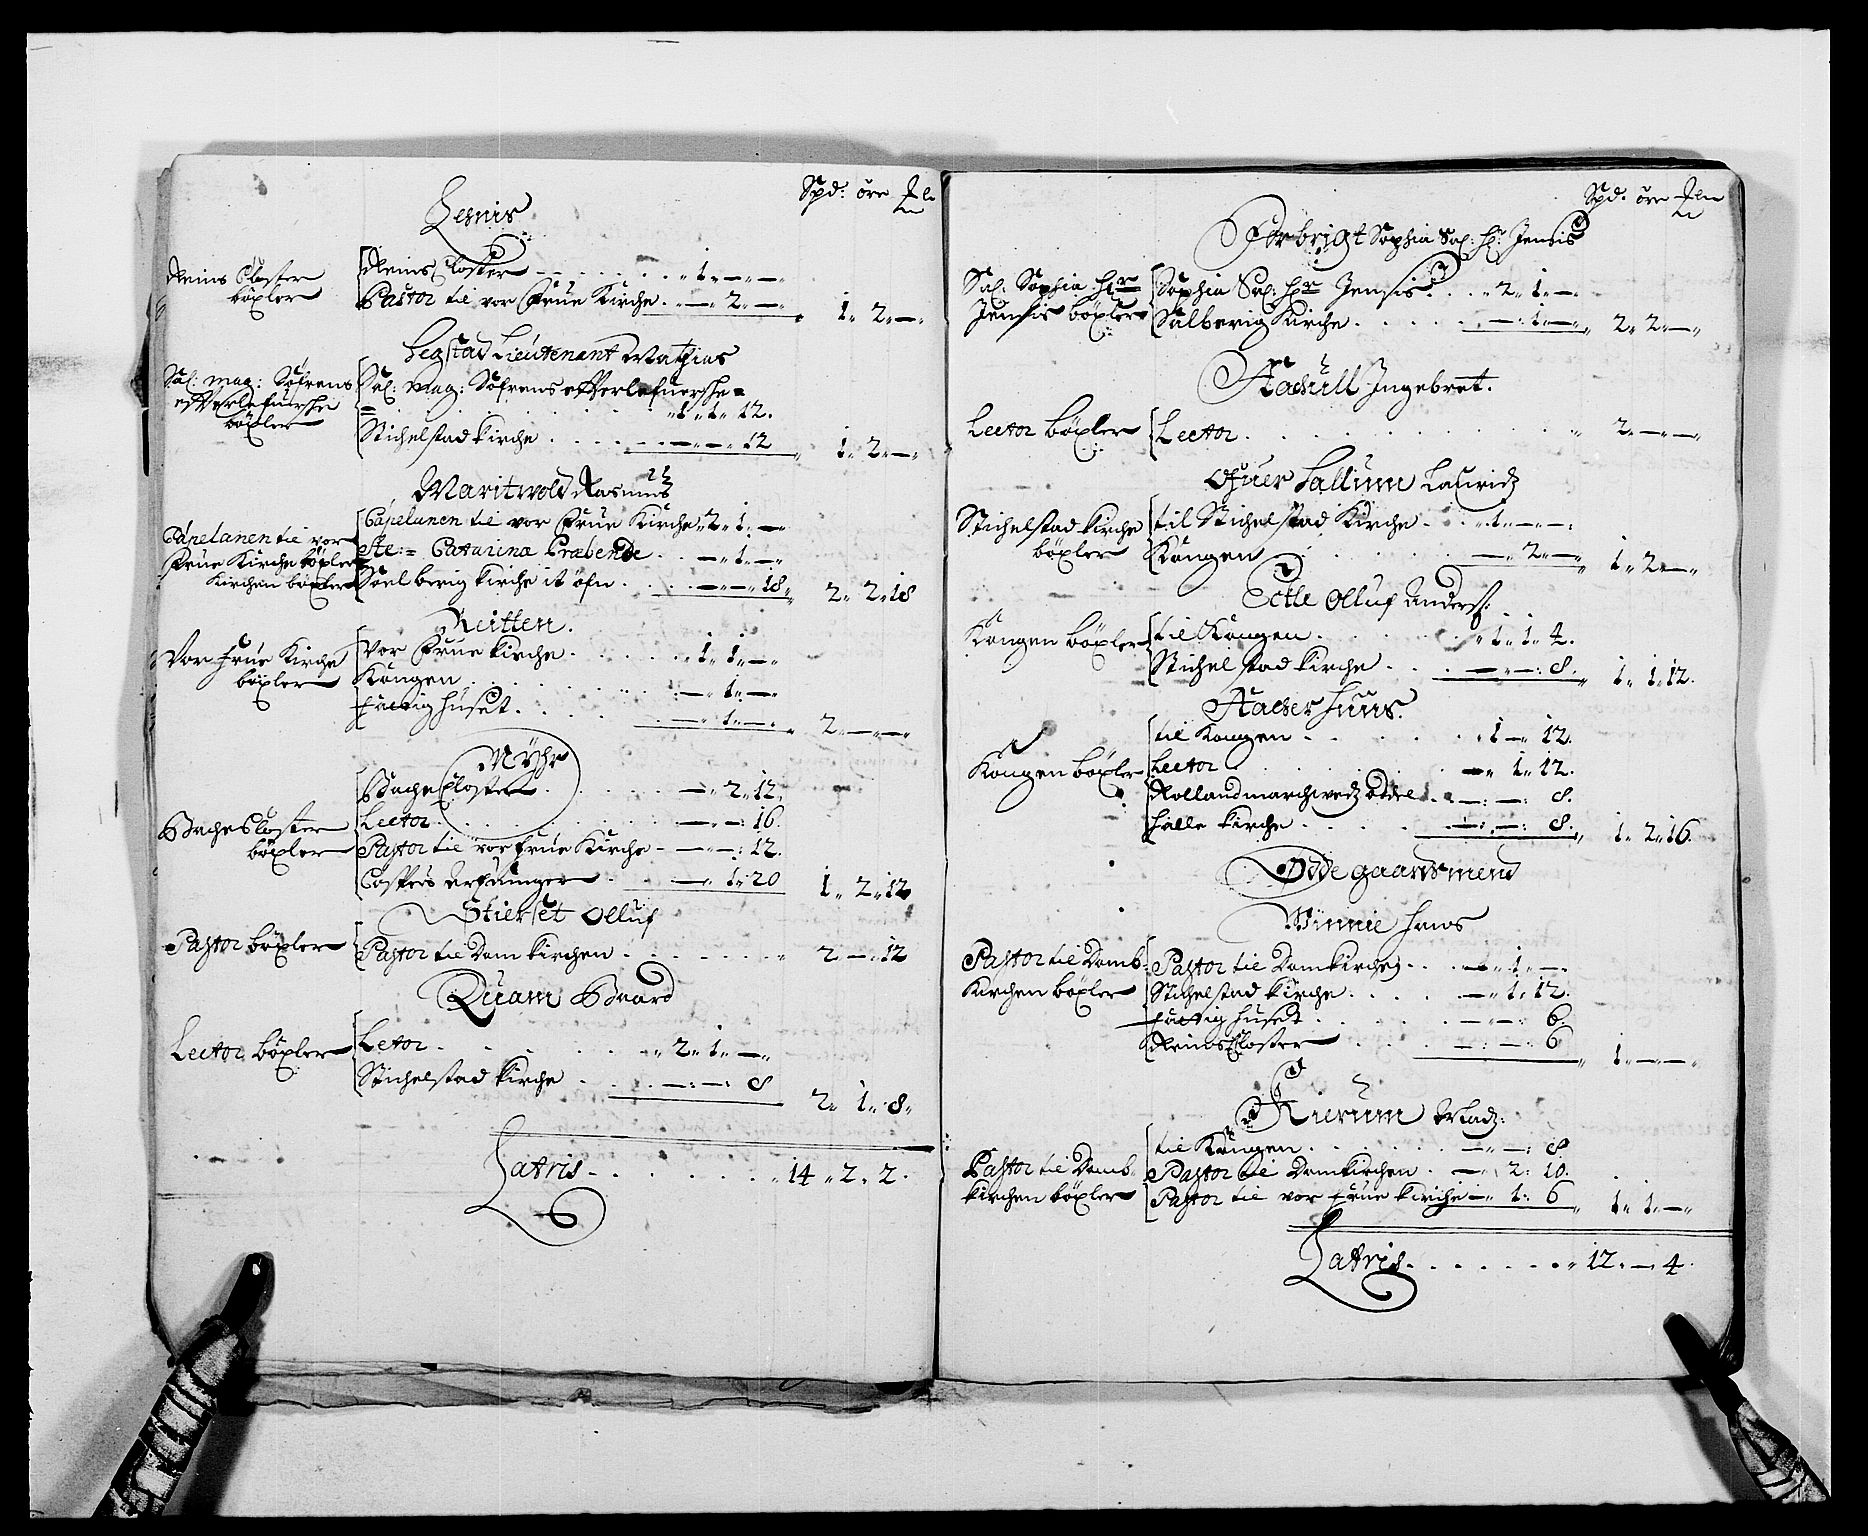 Spd: öre
Lesnis
Reins Closter
böxler
Reins Closter - - . . . . „ 1 „ — „ —
Pastor til vor Frue Kirche . „ — „ 2 „ — „
1 „ 2 „ — „
Legstad Lieutenant Matzias
Sal: mag: Søfrens
efterlefuersche
böxler
Sal: mag: Søfrens efterlefuersche =
= . . . . . „ 1 „ 1 „ 12.
Stichelstad kirche . . . . . — „ — „ 12
1 „ 2 „ — „
Maritwold Rasmus
Capelanen til vor
Frue Kirche böxler
Kirchen böxler
Capelanen til vor Frue Kirche „ 2 „ 1 „ —
Ste: = Catarina Præbende . . — „ 1 „ — „
Soelberig kirche it öfn . . . — „ — „ 18 „
2 „ 2 „ 18
Reitten.
Vor Frue Kirche
böxler
Vor Frue kirche . . . . . . 1 „ 1 „ — „
Kongen . . . . . . . . — „ 1 „ — „
Fattighuset . . . . — „ 1 „ — „
2 „ — „ — „
Myhr
Bache Closter
böxler
Bache Closter . . . . . — „ 2 „ 12.
Lector . . . . . . . . — „ — : 16.
Pastor til vor Frue Kirche - — „ — : 12.
Caspers Arfuinger . . . — „ 1 „ 20
1 „ 2 „ 12
Stierset Olluf
Pastor böxler
Pastor til Dom kirchen . . . . . . . „
2 „ — „ 12
Quam Baard
Lector böxler
Letor . . . . . . „ 2 „ 1 „ — „
Stichelstad kirche . . . . — : — : 8
2 „ 1 „ 8 „
Latris - . . . . . . „ 14 „ 2 „ 2 .
Spd: öre
Forbrigt Sophia Sal: Hr: Jensis
Sal: Sophia Hr
Jensis böxler
Sophia Sal: Hr Jensis . . . „ 2 „ 1 „ — .
Salberig Kirche . . . . . — : 1 „ — „
2 „ 2 „ — „
Hachull Ingebret.
Lector böxler
Lector . . . . . . . . . . . „
2 „ — „ — „
Ofuer Hallum Lauridz
Stichelstad kirche
böxler
til Stichelstad Kirche . . „ 1 „ — „ — .
Kongen . . . . . . — „ 2 „ — „
1 „ 2 „ — „
Ectle Olluf Anders:
Kongen böxler
til Kongen . . . . . „ 1 „ 1 „ 4.
Stichelstad kirche . . . — „ — : 8.
1 „ 1 „ 12.
Kongen böxler
til Kongen . . . . . . „ 1 „ — „ 12.
Lector . . . . . . . — „ 1 „ 12.
Halle kirche . . . . . — : — : 8.
1 „ 2 „ 16.
Ødegaardsmend
Winnie Hans
Pastor til Domb-
Kirchen böxler
Pastor til Domkirchen . . . — „ 1 „ — .
Stichelstad kirche . . . . — „ 1 „ 12.
Fattig huset . . . . . — „ — : 6.
Reins Closter . . . . — : — : 6
1 „ — „ — „
Kierum Madz:
Pastor til Domb
kirchen böxler
til Kongen . . . . . . — „ — : 8
Pastor til Domkirchen . — „ 2 : 10.
Pastor til vor Frue kirche — „ 1 : 6
1 „ 1 „ — „
Latris . . . . . . . „ 12 „ — „ 4.